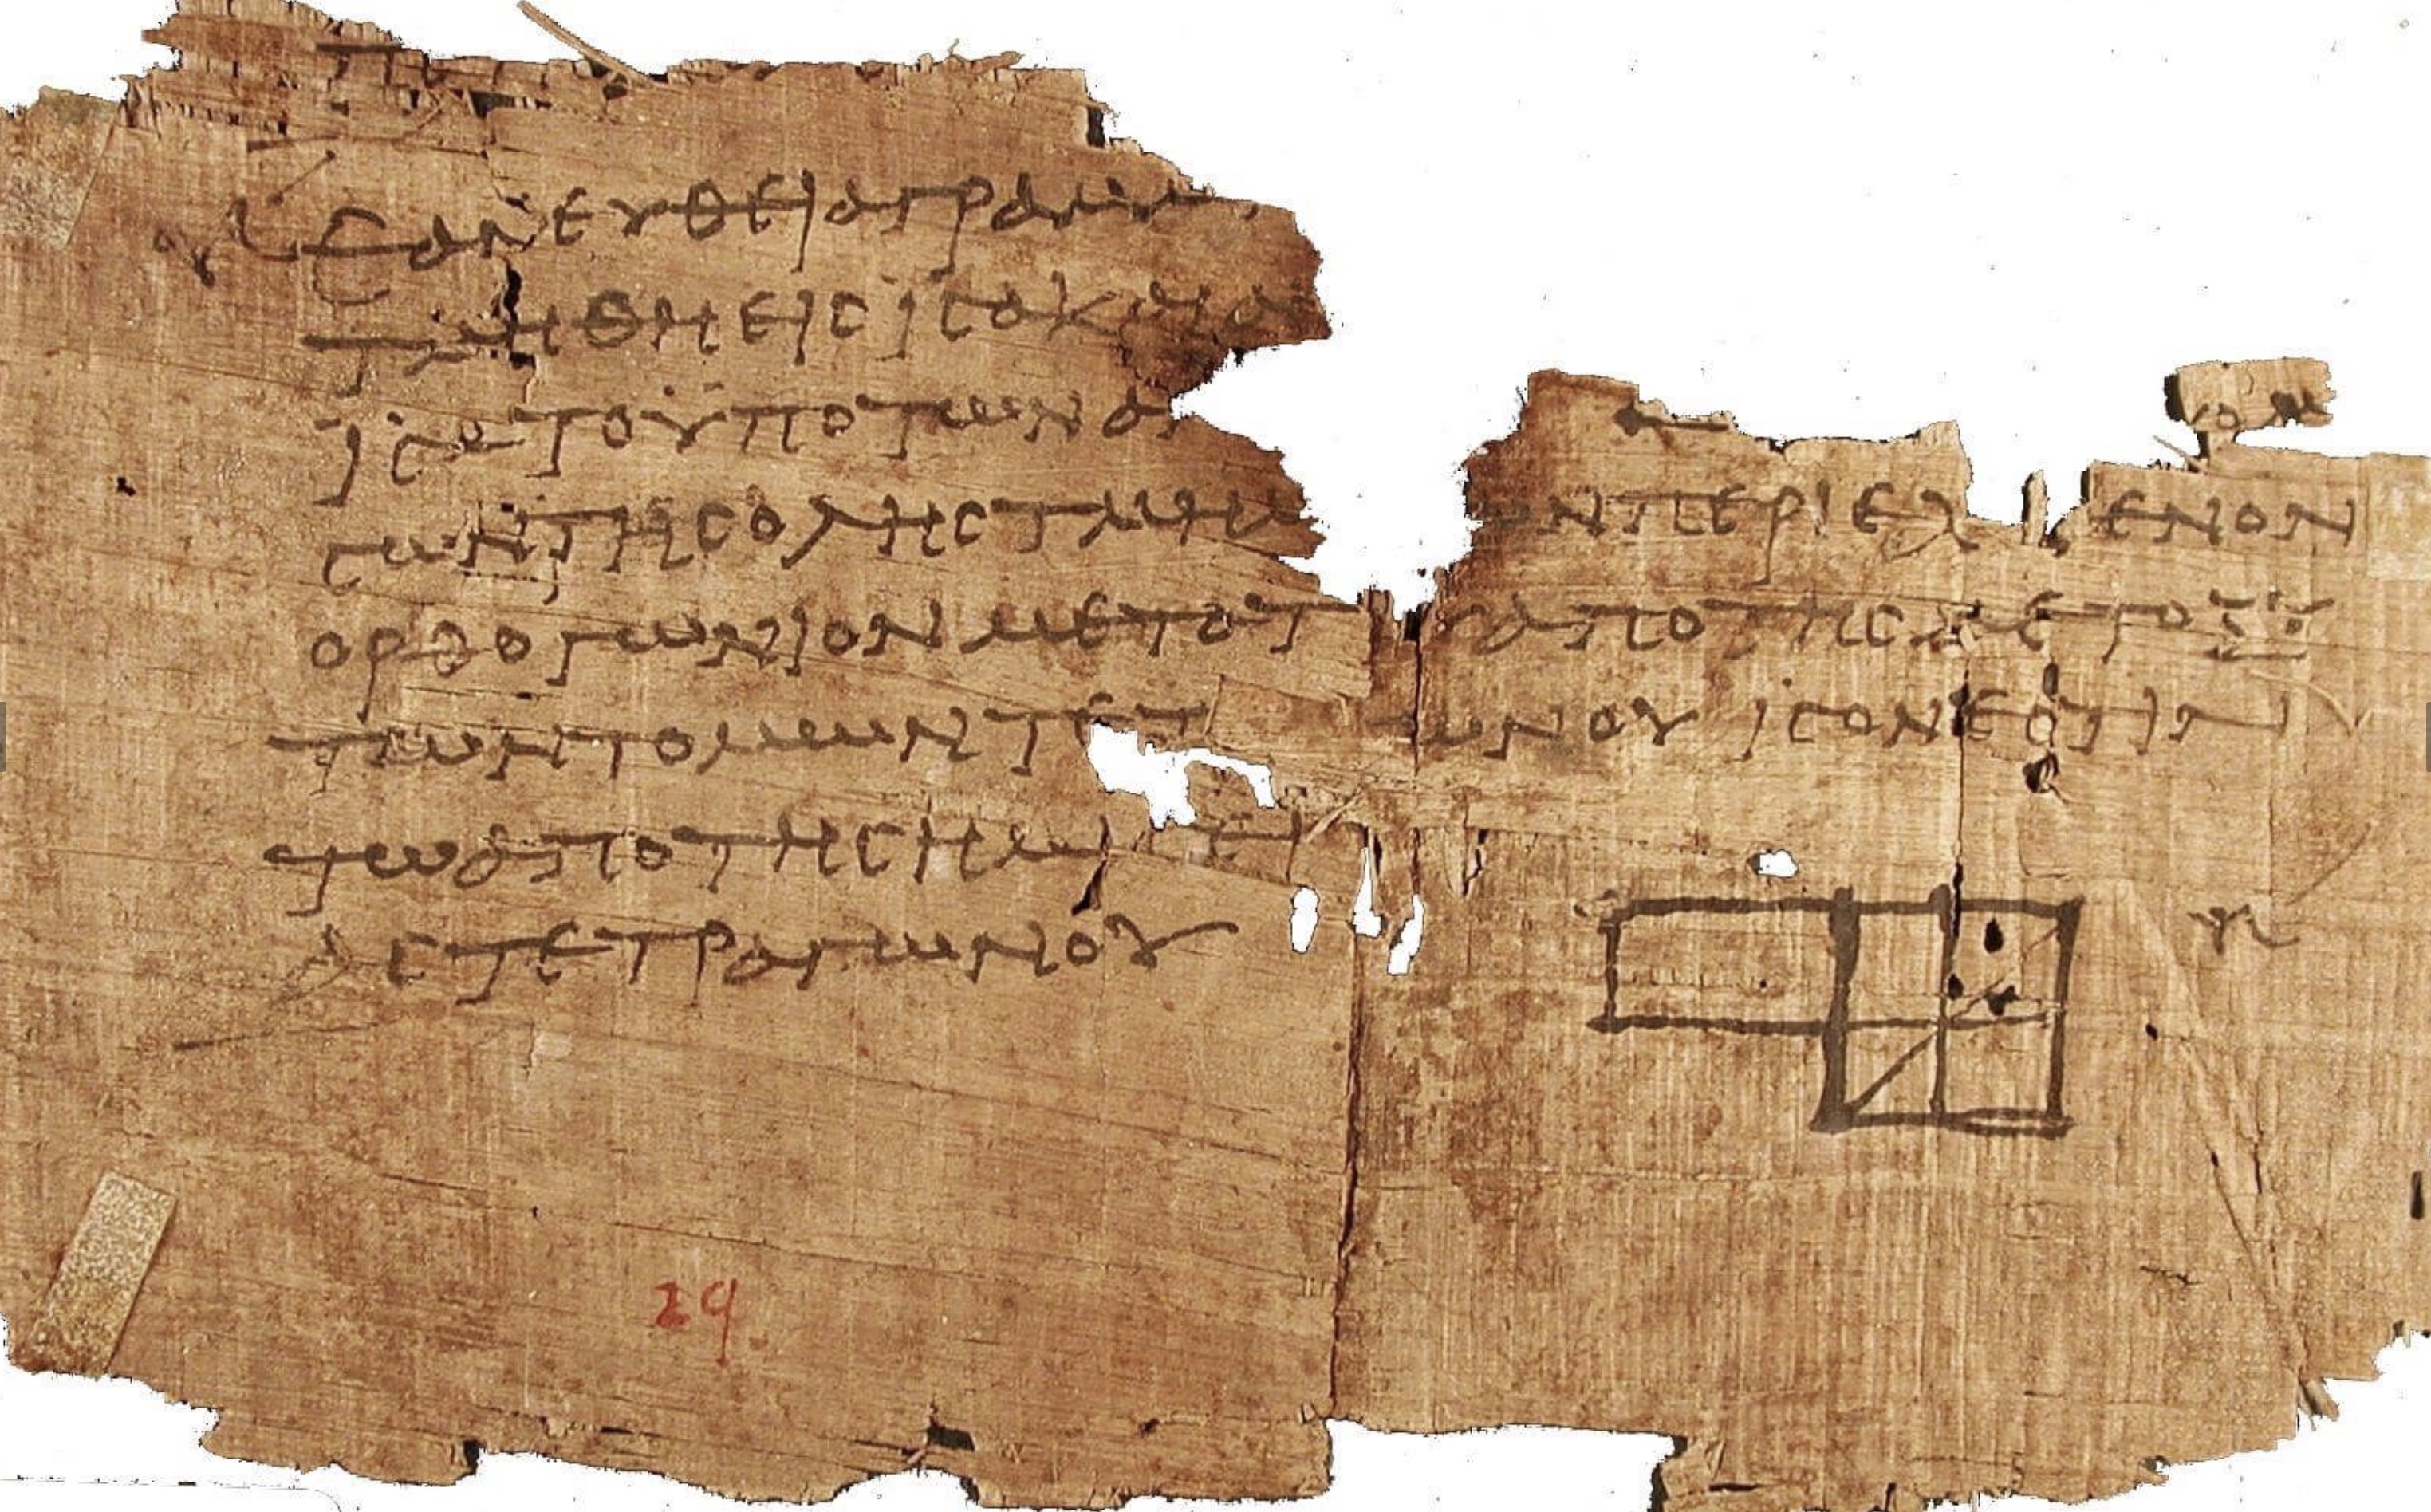 ΕΑΝΕΥΘΕΙΑΓΡΑΜΜ
ΤΜΗΘΗΕΙϹΙϹΑΚΑΙΑ
ΙϹΑΤΟΫΠΟΤΩΝΑΝ
ϹΩΝΤΗϹΟΛΗϹΤΜΗΜ ΩΝΠΕΡΙΕΧ ΜΕΝΟΝ
ΟΡΘΟΓΩΝΙΟΝΜΕΤΟΤ ΥΑΠΟΤΗϹΜΕΤΟΞΫ
ΤΩΝΤΟΜΩΝΤΕΤ ΩΝΟΥ ΙϹΟΝΕϹΤΙΝ
ΤΩΑΠΟΤΗϹΗΜΙϹΕΙ
ΑϹΤΕΤΡΑΓΩΝΟΥ
29